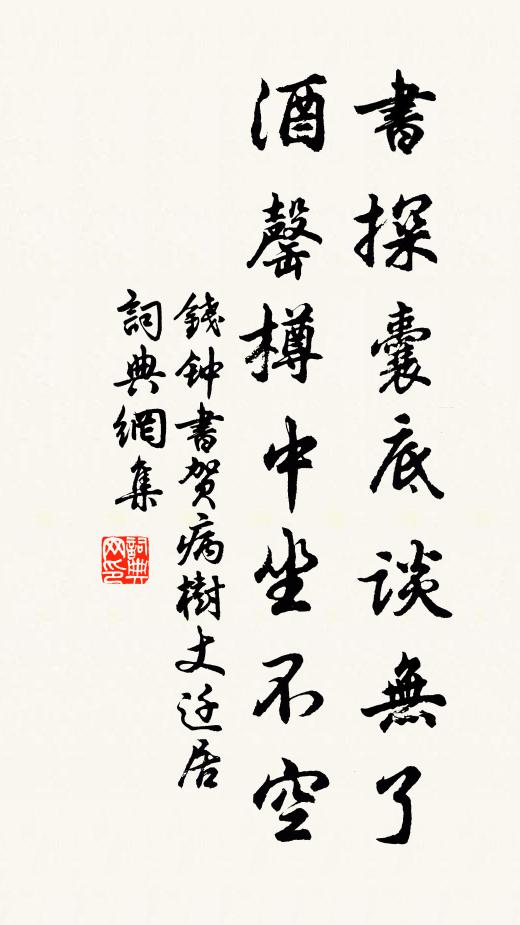 書探囊底談無了
酒罄樽中坐不空
錢钟書贺病樹丈迁居
詞典網集
詞典网印